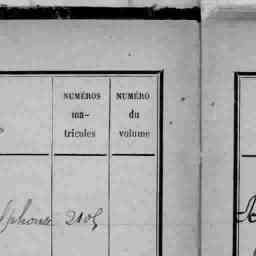 NUMÉROS
ma-
tricules
NUMÉRO
du
volume
lphonse 2105